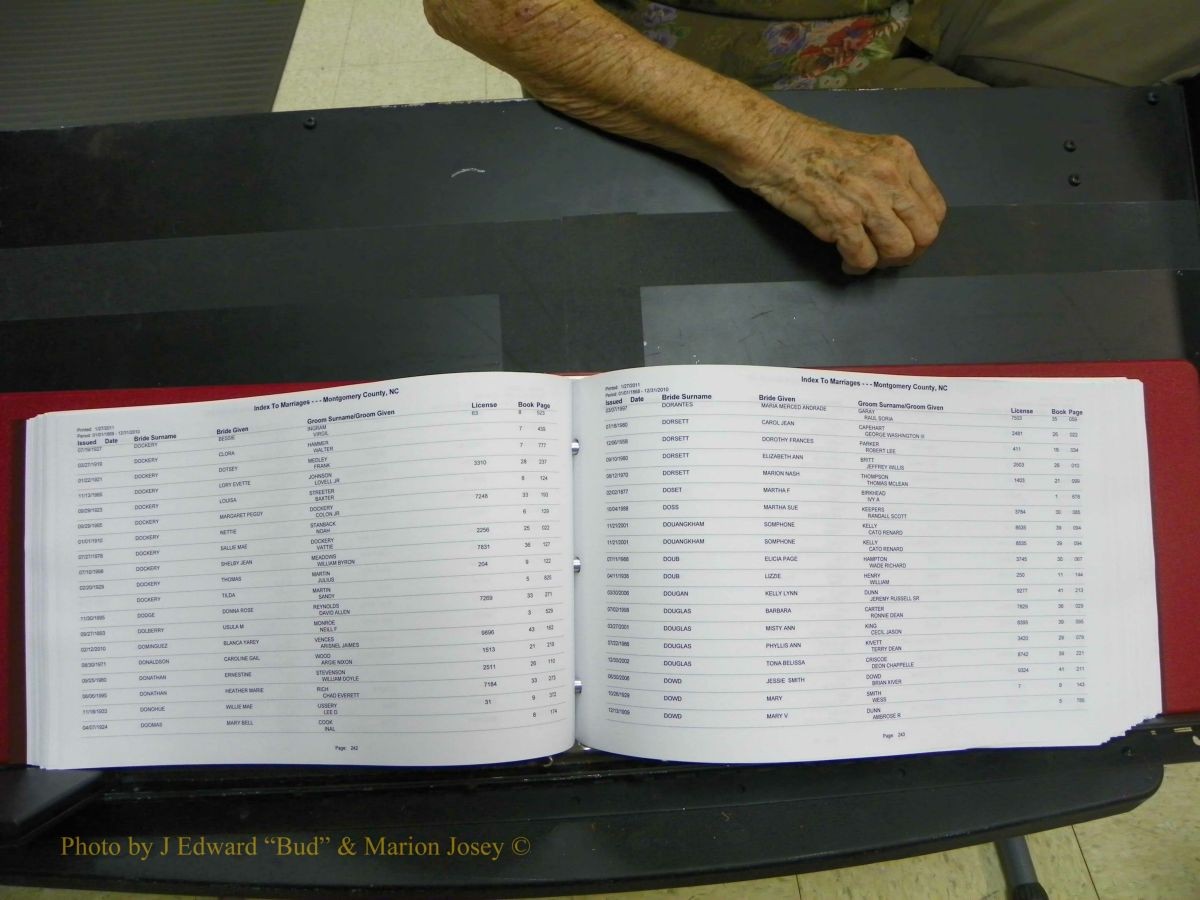 Index To Marriages - - - Montgomery County, NC
Printed: 1/27/2011
Period: 01/01/1868 - 12/31/2010
Issued Date Bride Surname Bride Given Groom Surname/Groom Given License Book Page
07/19/1927 DOCKERY BESSIE INGRAM VIRGIL 63 8 523
03/27/1919 DOCKERY CLORA HAMMER WALTER 7 435
01/22/1921 DOCKERY DOTSEY MEDLEY FRANK 7 777
11/13/1985 DOCKERY LORY EVETTE JOHNSON LOVELL JR 3310 28 237
09/09/1923 DOCKERY LOUISA STREETER BAXTER 8 124
09/29/1995 DOCKERY MARGARET PEGGY DOCKERY COLON JR 7248 33 193
01/01/1912 DOCKERY NETTIE STANBACK NOAH 6 129
07/27/1978 DOCKERY SALLIE MAE DOCKERY VATTIE 2256 25 022
07/10/1998 DOCKERY SHELBY JEAN MEADOWS WILLIAM BYRON 7831 36 127
02/20/1929 DOCKERY THOMAS MARTIN JULIUS 204 9 122
DOCKERY TILDA MARTIN SANDY 5 825
11/30/1995 DODGE DONNA ROSE REYNOLDS DAVID ALLEN 7269 33 271
09/27/1893 DOLBERRY USULA M MONROE NEILL F 3 529
02/12/2010 DOMINGUEZ BLANCA YAREY VENCES ARISNEL JAIMES 9696 43 162
08/30/1971 DONALDSON CAROLINE GAIL WOOD ARGIE NIXON 1513 21 219
09/05/1980 DONATHAN ERNESTINE STEVENSON WILLIAM DOYLE 2511 26 110
06/06/1995 DONATHAN HEATHER MARIE RICH CHAD EVERETT 7184 33 273
11/18/1933 DONOHUE WILLIE MAE USSERY LEE D 31 9 372
04/07/1924 DOOMAS MARY BELL COOK INAL 8 174
Page: 242
Index To Marriages - - - Montgomery County, NC
Printed: 1/27/2011
Period: 01/01/1868 - 12/31/2010
Issued Date Bride Surname Bride Given Groom Surname/Groom Given License Book Page
03/07/1997 DORANTES MARIA MERCED ANDRADE GARAY RAUL SORIA 7503 35 059
07/18/1980 DORSETT CAROL JEAN CAPEHART GEORGE WASHINGTON III 2481 26 022
12/06/1958 DORSETT DOROTHY FRANCES PARKER ROBERT LEE 411 16 334
09/10/1980 DORSETT ELIZABETH ANN BRITT JEFFREY WILLIS 2503 26 010
08/12/1970 DORSETT MARION NASH THOMPSON THOMAS MCLEAN 1403 21 099
02/02/1877 DOSET MARTHA F BIRKHEAD IVY A 1 678
10/04/1988 DOSS MARTHA SUE KEEPERS RANDALL SCOTT 3784 30 085
11/21/2001 DOUANGKHAM SOMPHONE KELLY CATO RENARD 8535 39 094
11/21/2001 DOUANGKHAM SOMPHONE KELLY CATO RENARD 8535 39 094
07/11/1988 DOUB ELICIA PAGE HAMPTON WADE RICHARD 3745 30 007
04/11/1936 DOUB LIZZIE HENRY WILLIAM 250 11 144
03/30/2006 DOUGAN KELLY LYNN DUNN JEREMY RUSSELL SR 9277 41 213
07/02/1998 DOUGLAS BARBARA CARTER RONNIE DEAN 7829 36 029
03/27/2001 DOUGLAS MISTY ANN KING CECIL JASON 8395 39 095
07/22/1986 DOUGLAS PHYLLIS ANN KIVETT TERRY DEAN 3423 29 079
12/30/2002 DOUGLAS TONA BELISSA CRISCOE DEON CHAPPELLE 8742 39 221
06/30/2006 DOWD JESSIE SMITH DOWD BRIAN KIVER 9324 41 211
10/28/1929 DOWD MARY SMITH WESS 7 9 143
12/13/1909 DOWD MARY V DUNN AMBROSE R 5 785
Page: 243
Photo by J Edward “Bud” & Marion Josey ©